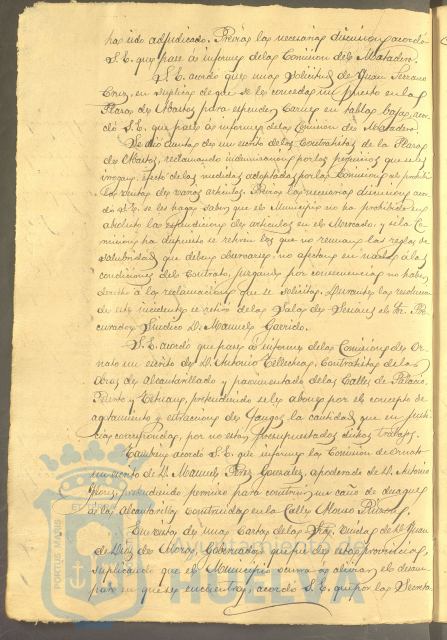 ha sido adjudicado. Previa la necesaria discusion acordó
S. E. que pase á informe de la Comision de Matadero.
S. E. acordó que una solicitud de Juan Serrano
Cruz, en suplica de que se le conceda un puesto en la
Plaza de Abastos para espender Carnes en tablas bajas, acor
dó S. E. que pase á informe de la Comision de Matadero.
Se dio cuenta de un escrito de los Contratistas de la Plaza
de Abastos, reclamando indemnizacion por los perjuicios que se le
irrogan, efecto de las medidas adoptadas por la Comision al prohibir
la venta de varios articulos. Previa la necesaria discusion, acor
dó S. E. se les haga saber que el Municipio no ha prohibido en
absoluto la espendicion de articulos en el Mercado, y si la Co
mision ha dispuesto se retiren los que no reunan las reglas de
salubridad que deben observarse, no afectan en nada á las
condiciones del Contrato, juzgando por consecuencia no haber
derecho á la reclamacion que se solicita. Durante la resolucion
de este incidente se retiró de la Sala de Sesiones el Sr. Pro
curador Sindico D. Manuel Garrido.
S. E. acordó que pase á informe de la Comision de Or
nato un escrito de D. Antonio Tellechea, Contratista de las
obras de alcantarillado y pavimentado de las Calles de Palacio,
Puerto y Tetuan, pretendiendo se le abone por el concepto de
agotamiento y estracciones de fangos la cantidad que en justi
cia corresponda, por no estar presupuestados dichos trabajos.
Tambien acordó S. E. que informe la Comision de Ornato
un escrito de D. Manuel Perez Gonzalez, apoderado de D. Antonio
pretendiendo permiso para construir un caño de desague
á la alcantarilla construida en la Calle Alonso
En vista de una Carta de la Sra. Viuda de D. Juan
de Diaz de Mora, Gobernador que fué de esta provincia,
suplicando que el Municipio acuda á aliviar el desam
paro en que se encuentra, acordó S. E. que por la Secreta
PORTUS MARIS
Ayuntamiento de
HUELVA